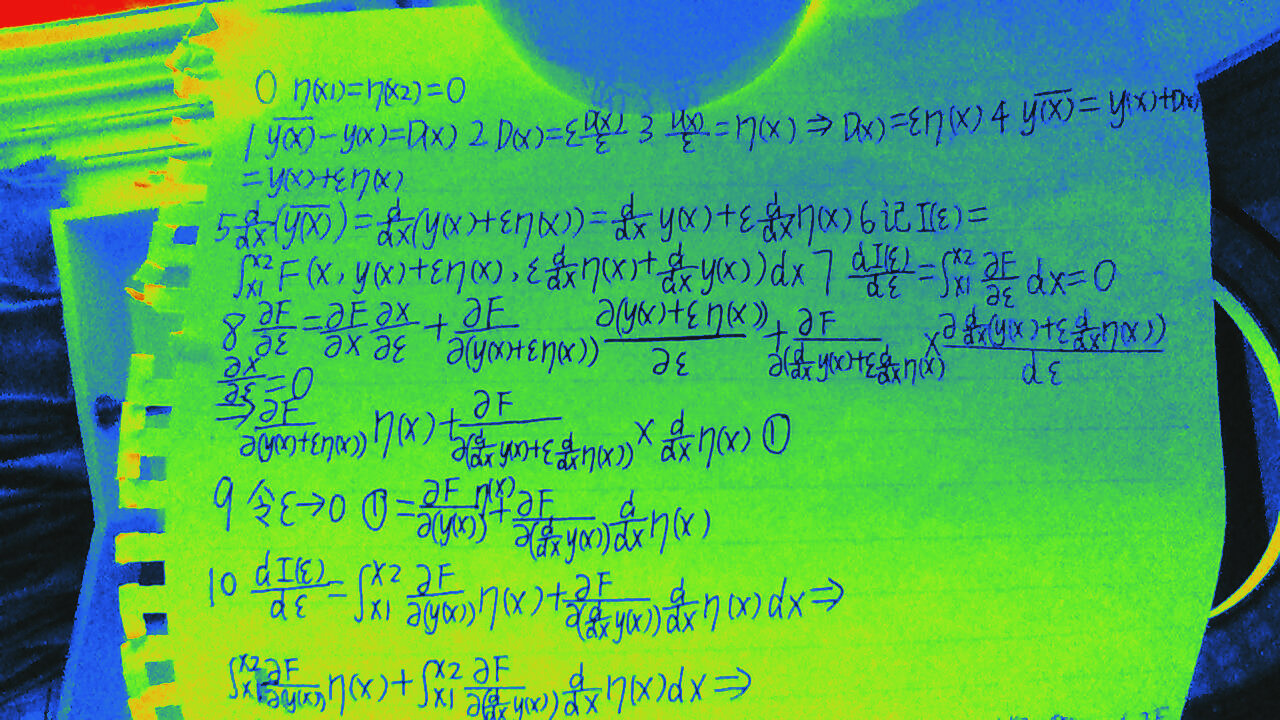 0 η(x1)=η(x2)=0
1 \overline{y(x)}-y(x)=D(x) 2 D(x)=ε\frac{D(x)}{ε} 3 \frac{D(x)}{ε}=η(x) ⇒ D(x)=εη(x) 4 \overline{y(x)}=y(x)+D(x)
=y(x)+εη(x)
5 \frac{d}{dx}(\overline{y(x)})=\frac{d}{dx}(y(x)+εη(x))=\frac{d}{dx}y(x)+ε\frac{d}{dx}η(x) 6 记 I(ε)=
∫_{x1}^{x2} F(x, y(x)+εη(x), ε\frac{d}{dx}η(x)+\frac{d}{dx}y(x))dx 7 \frac{dI(ε)}{dε}=∫_{x1}^{x2}\frac{∂F}{∂ε}dx=0
8 \frac{∂F}{∂ε}=\frac{∂F}{∂x}\frac{∂x}{∂ε}+\frac{∂F}{∂(y(x)+εη(x))}\frac{∂(y(x)+εη(x))}{∂ε}+\frac{∂F}{∂(\frac{d}{dx}y(x)+ε\frac{d}{dx}η(x))}×\frac{∂\frac{d}{dx}(y(x)+ε\frac{d}{dx}η(x))}{dε}
\frac{∂x}{∂ε}=0
⇒\frac{∂F}{∂(y(x)+εη(x))}η(x)+\frac{∂F}{∂(\frac{d}{dx}y(x)+ε\frac{d}{dx}η(x))}×\frac{d}{dx}η(x) ①
9 令ε→0 ①=\frac{∂F}{∂(y(x))}η(x)+\frac{∂F}{∂(\frac{d}{dx}y(x))}\frac{d}{dx}η(x)
10 \frac{dI(ε)}{dε}=∫_{x1}^{x2}\frac{∂F}{∂(y(x))}η(x)+\frac{∂F}{∂(\frac{d}{dx}y(x))}\frac{d}{dx}η(x)dx⇒
∫_{x1}^{x2}\frac{∂F}{∂(y(x))}η(x)+∫_{x1}^{x2}\frac{∂F}{∂(\frac{d}{dx}y(x))}\frac{d}{dx}η(x)dx⇒